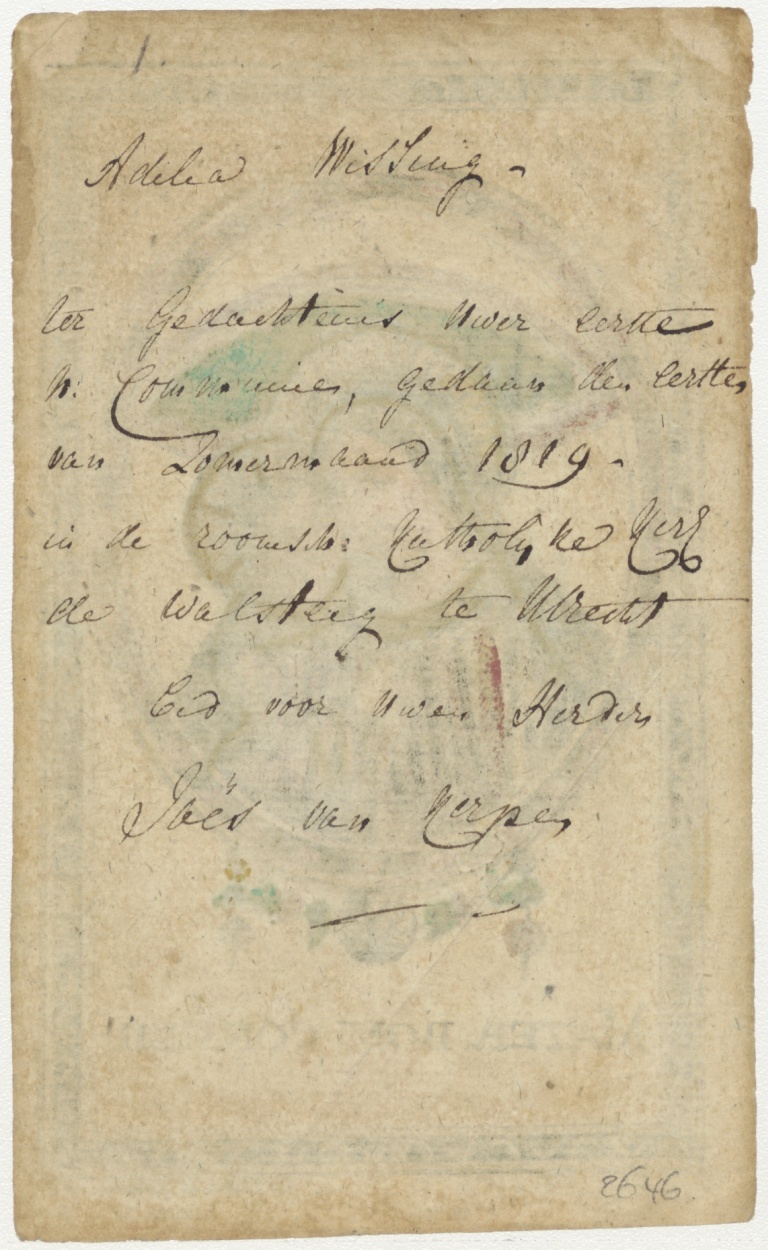 Adelia Wissing -
ter Gedachtenis uwer eerste
H: Communie, gedaan den eersten
van Zomermaand 1819 -
in de roomsch: Katholyke Kerk
de Walsteeg te Utrecht
Bid voor uwen Herder
Joës van Kerpen
2646